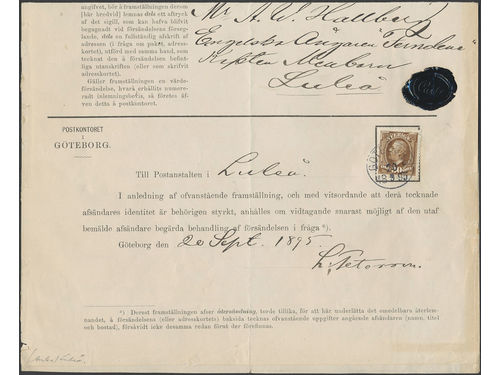 angifvet, bör å framställningen derom
[här bredvid] lemnas dels ett aftryck
af det sigill, som kan hafva blifvit
begagnadt vid försändelsens försegl-
ande, dels en fullständig afskrift af
adressen (i fråga om paket, adress-
kortet), utförd med samma hand, som
tecknat den å försändelsen befint-
liga utanskriften (eller som skrifvit
adresskortet).
Gäller framställningen en värde-
försändelse, hvarå erhållits numere-
radt inlemningsbevis, så företes äf-
ven detta å postkontoret.
Mr A. W. Hallberg
Engelska Ångaren
Kapten
Luleå
POSTKONTORET
I
GÖTEBORG.
SVERIGE
20
Till Postanstalten i Luleå.
I anledning af ofvanstående framställning, och med vitsordande att derå tecknade
afsändares identitet är behörigen styrkt, anhålles om vidtagande snarast möjligt af den utaf
bemälde afsändare begärda behandling af försändelsen i fråga *).
Göteborg den 20 Sept. 1895.
*) Derest framställningen afser återsändning, torde tillika, för att här underlätta det omedelbara återlem-
nandet, å försändelsens (eller adresskortets) baksida tecknas ofvanstående uppgifter angående afsändaren (namn, titel
och bostad), försåvidt icke desamma redan förut der förefinnas.